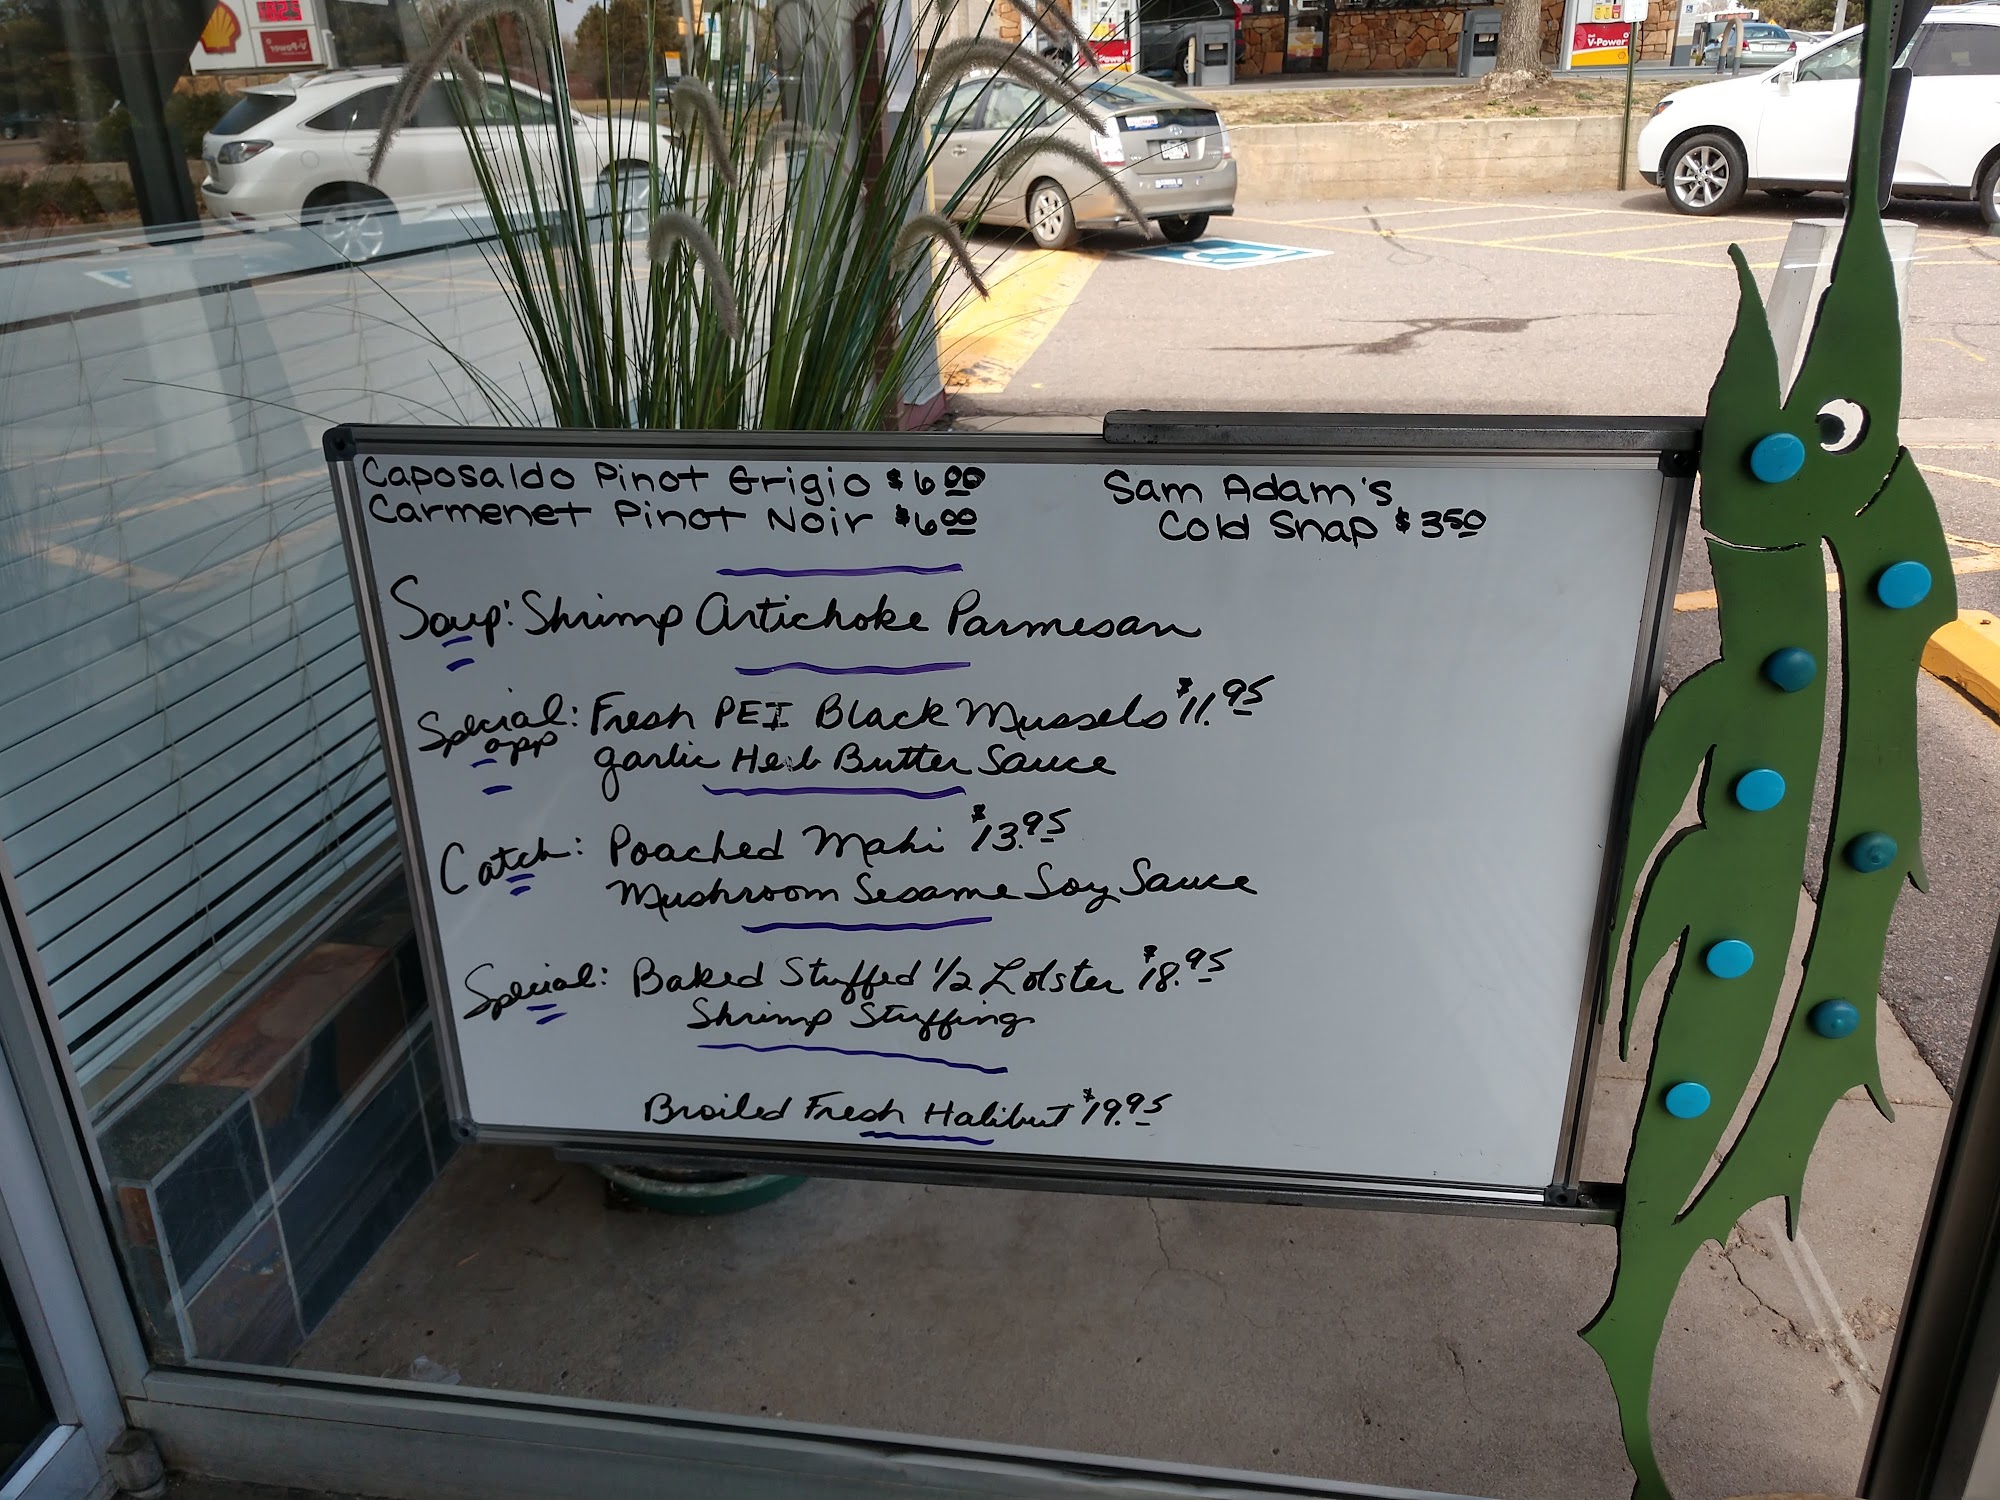 V-Power
V-Power
Caposaldo Pinot Grigio $6.00
Carmenet Pinot Noir $6.00
Sam Adam's
Cold Snap $3.50
Soup: Shrimp Artichoke Parmesan
Special: Fresh PEI Black Mussels $11.95
app garlic Herb Butter Sauce
Catch: Poached Mahi $13.95
Mushroom Sesame Soy Sauce
Special: Baked Stuffed 1/2 Lobster $18.95
Shrimp Stuffing
Broiled Fresh Halibut $19.95